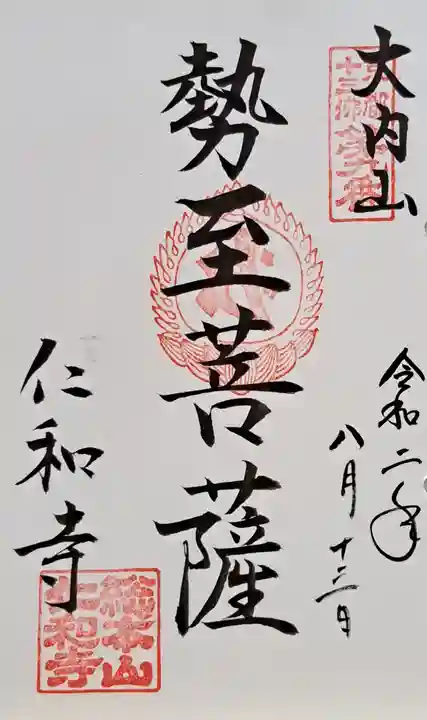 大内山
令和二年
八月十三日
勢至菩薩
仁和寺
総本山
仁和寺